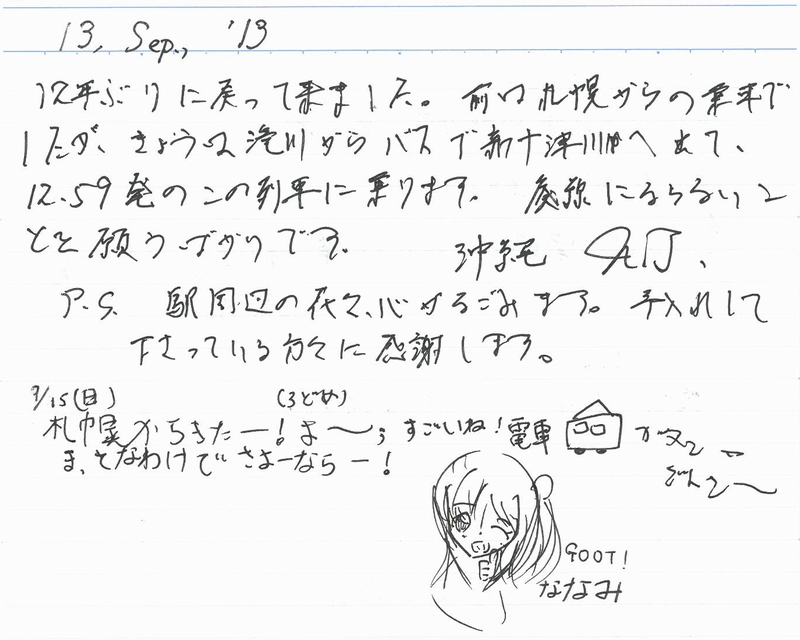 13, Sep., '13
12年ぶりに戻って来ました。前は札幌からの乗車で
したが、きょうは滝川からバスで新十津川へ出て、
12.59発のこの列車に乗ります。廃線にならないこ
とを願うばかりです。 沖縄
P.S. 駅周辺の花々、心がなごみます。手入れして
下さっている方々に感謝します。
9/15(日) (3どめ)
札幌からきたー!よ〜; すごいね!電車
ま、そなわけでさよーならー!
GOOT!
ななみ